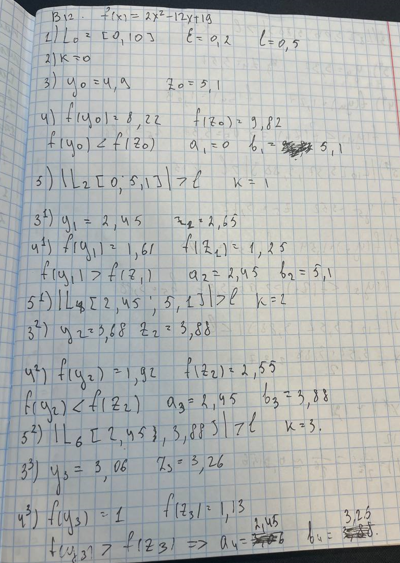 В12. f(x) = 2x²-12x+19
1) L₀ = [0, 10] ε = 0,2 l = 0,5
2) k = 0
3) y₀ = 4,9 z₀ = 5,1
4) f(y₀) = 8,22 f(z₀) = 9,82
f(y₀) < f(z₀) a₁ = 0 b₁ = 5,1
5) |L₂ [0; 5,1]| > l k = 1
3¹) y₁ = 2,45 z₁ = 2,65
4¹) f(y₁) = 1,61 f(z₁) = 1,25
f(y₁) > f(z₁) a₂ = 2,45 b₂ = 5,1
5¹) |L₄ [2,45; 5,1]| > l k = 2
3²) y₂ = 3,68 z₂ = 3,88
4²) f(y₂) = 1,92 f(z₂) = 2,55
f(y₂) < f(z₂) a₃ = 2,45 b₃ = 3,88
5²) |L₆ [2,45; 3,88]| > l k = 3.
3³) y₃ = 3,06 z₃ = 3,26
4³) f(y₃) = 1 f(z₃) = 1,13
f(y₃) > f(z₃) => a₄ = 2,45 b₄ = 3,25